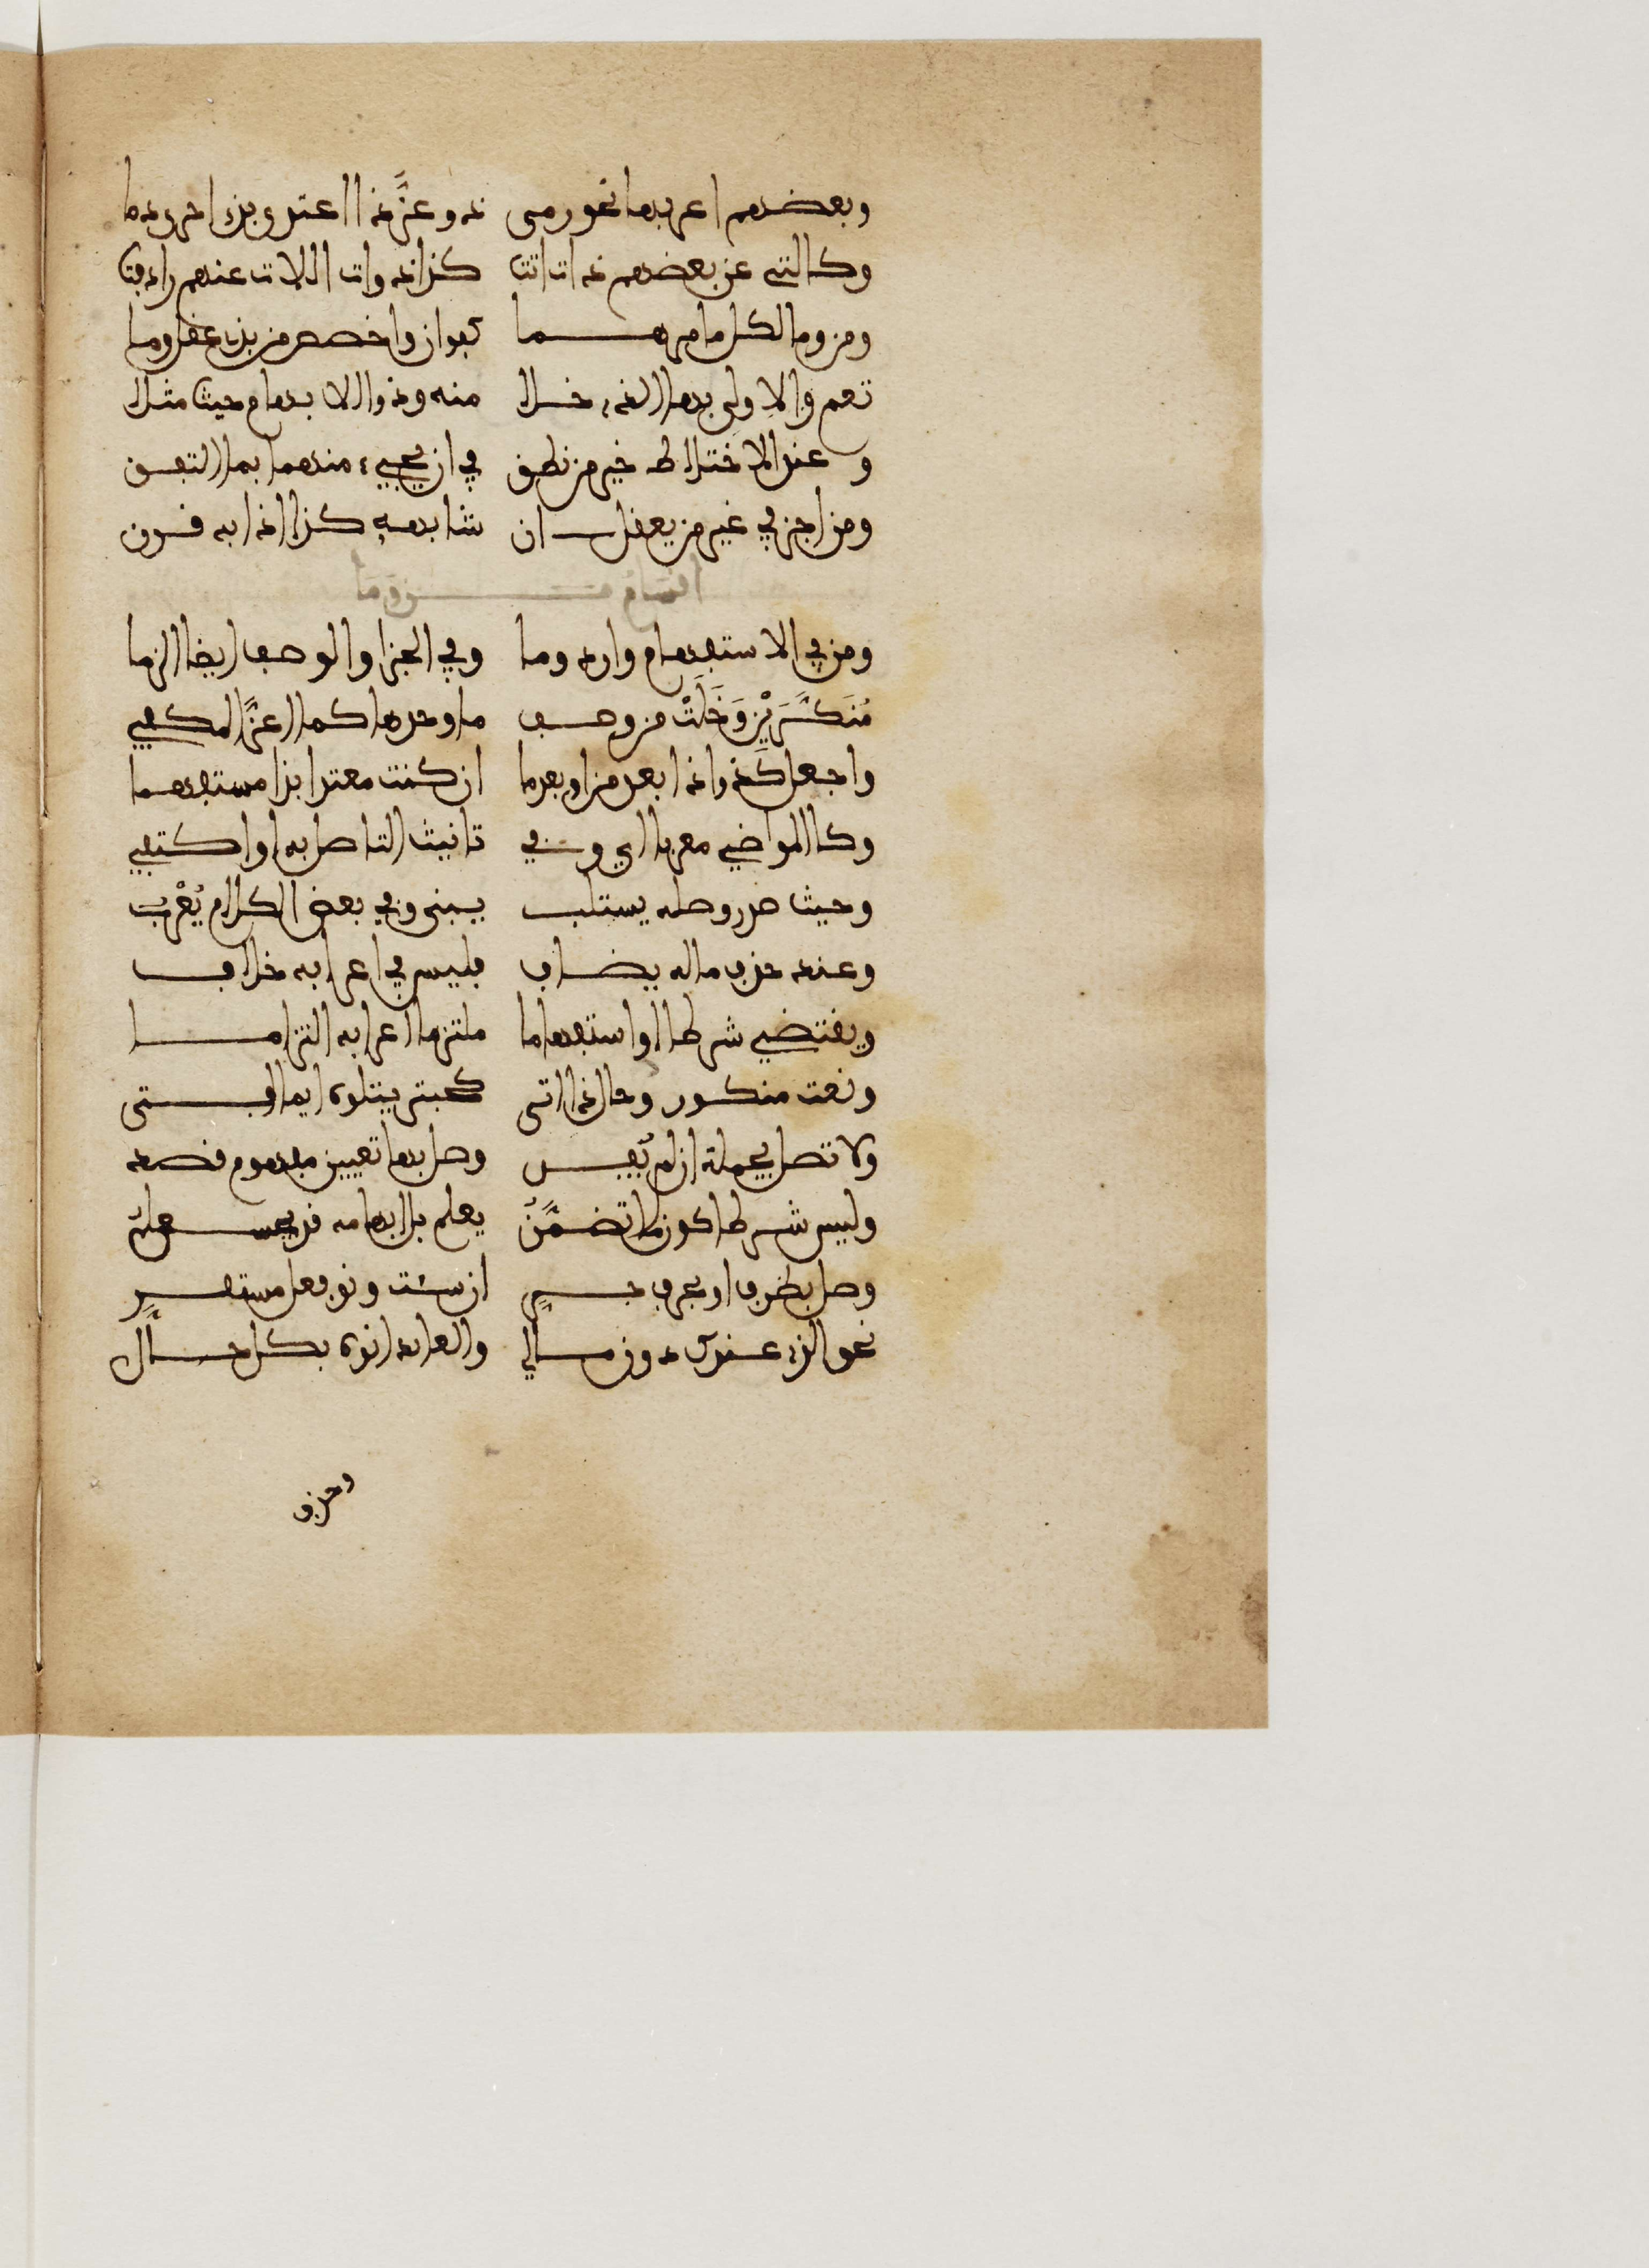 وبعضهم اعربها نحو رمى ذو وعز ذا اعتد وبذي احمر دما
وكالتي عن بعضهم ذات اتت كذا ذوات اللات عندهم رادفت
ومن وما لكل ما مر هما كفوان واخصص من بذي عقل وما
تعم والاولى بها الذي خلا منه وذو الابهام حيث مثلا
وعند الاختلاط خير من نطق في ان يجيء منهما بما اتفق
ومن اجز في غير من يعقل ان شابهه كذا اذا به قرن
اقسام من وما
ومن في الاستفهام وارد وما وفي الجزا والوصف ايضا الزما
مُنَكَّرَيْنِ وَخَلَتْ من وصف ما وحدها كما العزا المكفي
واجعل كذا ذا بعد من او بعد ما ان كنت معتدا بذا مستفهما
وكالمواضي معربا اي وفي تانيث التا صل به او اكتفي
وحيث صدر وصله يستلب يبنى وفي بعض الكلام يُعْرَبُ
وعند حذف ما له يضاف فليس في اعرابه خلاف
ويقتضي شرطا او استفهاما ملتزما اعرابه التزاما
ونعت منكور وحال ذا اتى كفتى يتلوه ايما فتى
ولا تصل بجملة ان لم تُفِد وصل بها تعيين مفهوم قصد
وليس شرطا كون ما تضمَّنُ يعلم بل ابهامه قد يحسن
وصل بظرف او بحرف جرٍ ان شئت ونو فعل مستقرٍ
نحو الذي عندك دون مالي والعائد انوه بكل حال
وحذف